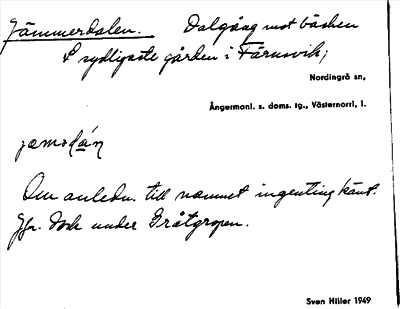 Jämmerdalen. Dalgång mot bäcken
S sydligaste gården i Färnsvik;
Nordingrå sn,
Ångermanl. s. doms. tg., Västernorrl. l.
Om anledn. till namnet ingenting känt.
Jfr. dock under Gråtgropen.
Sven Hiller 1949